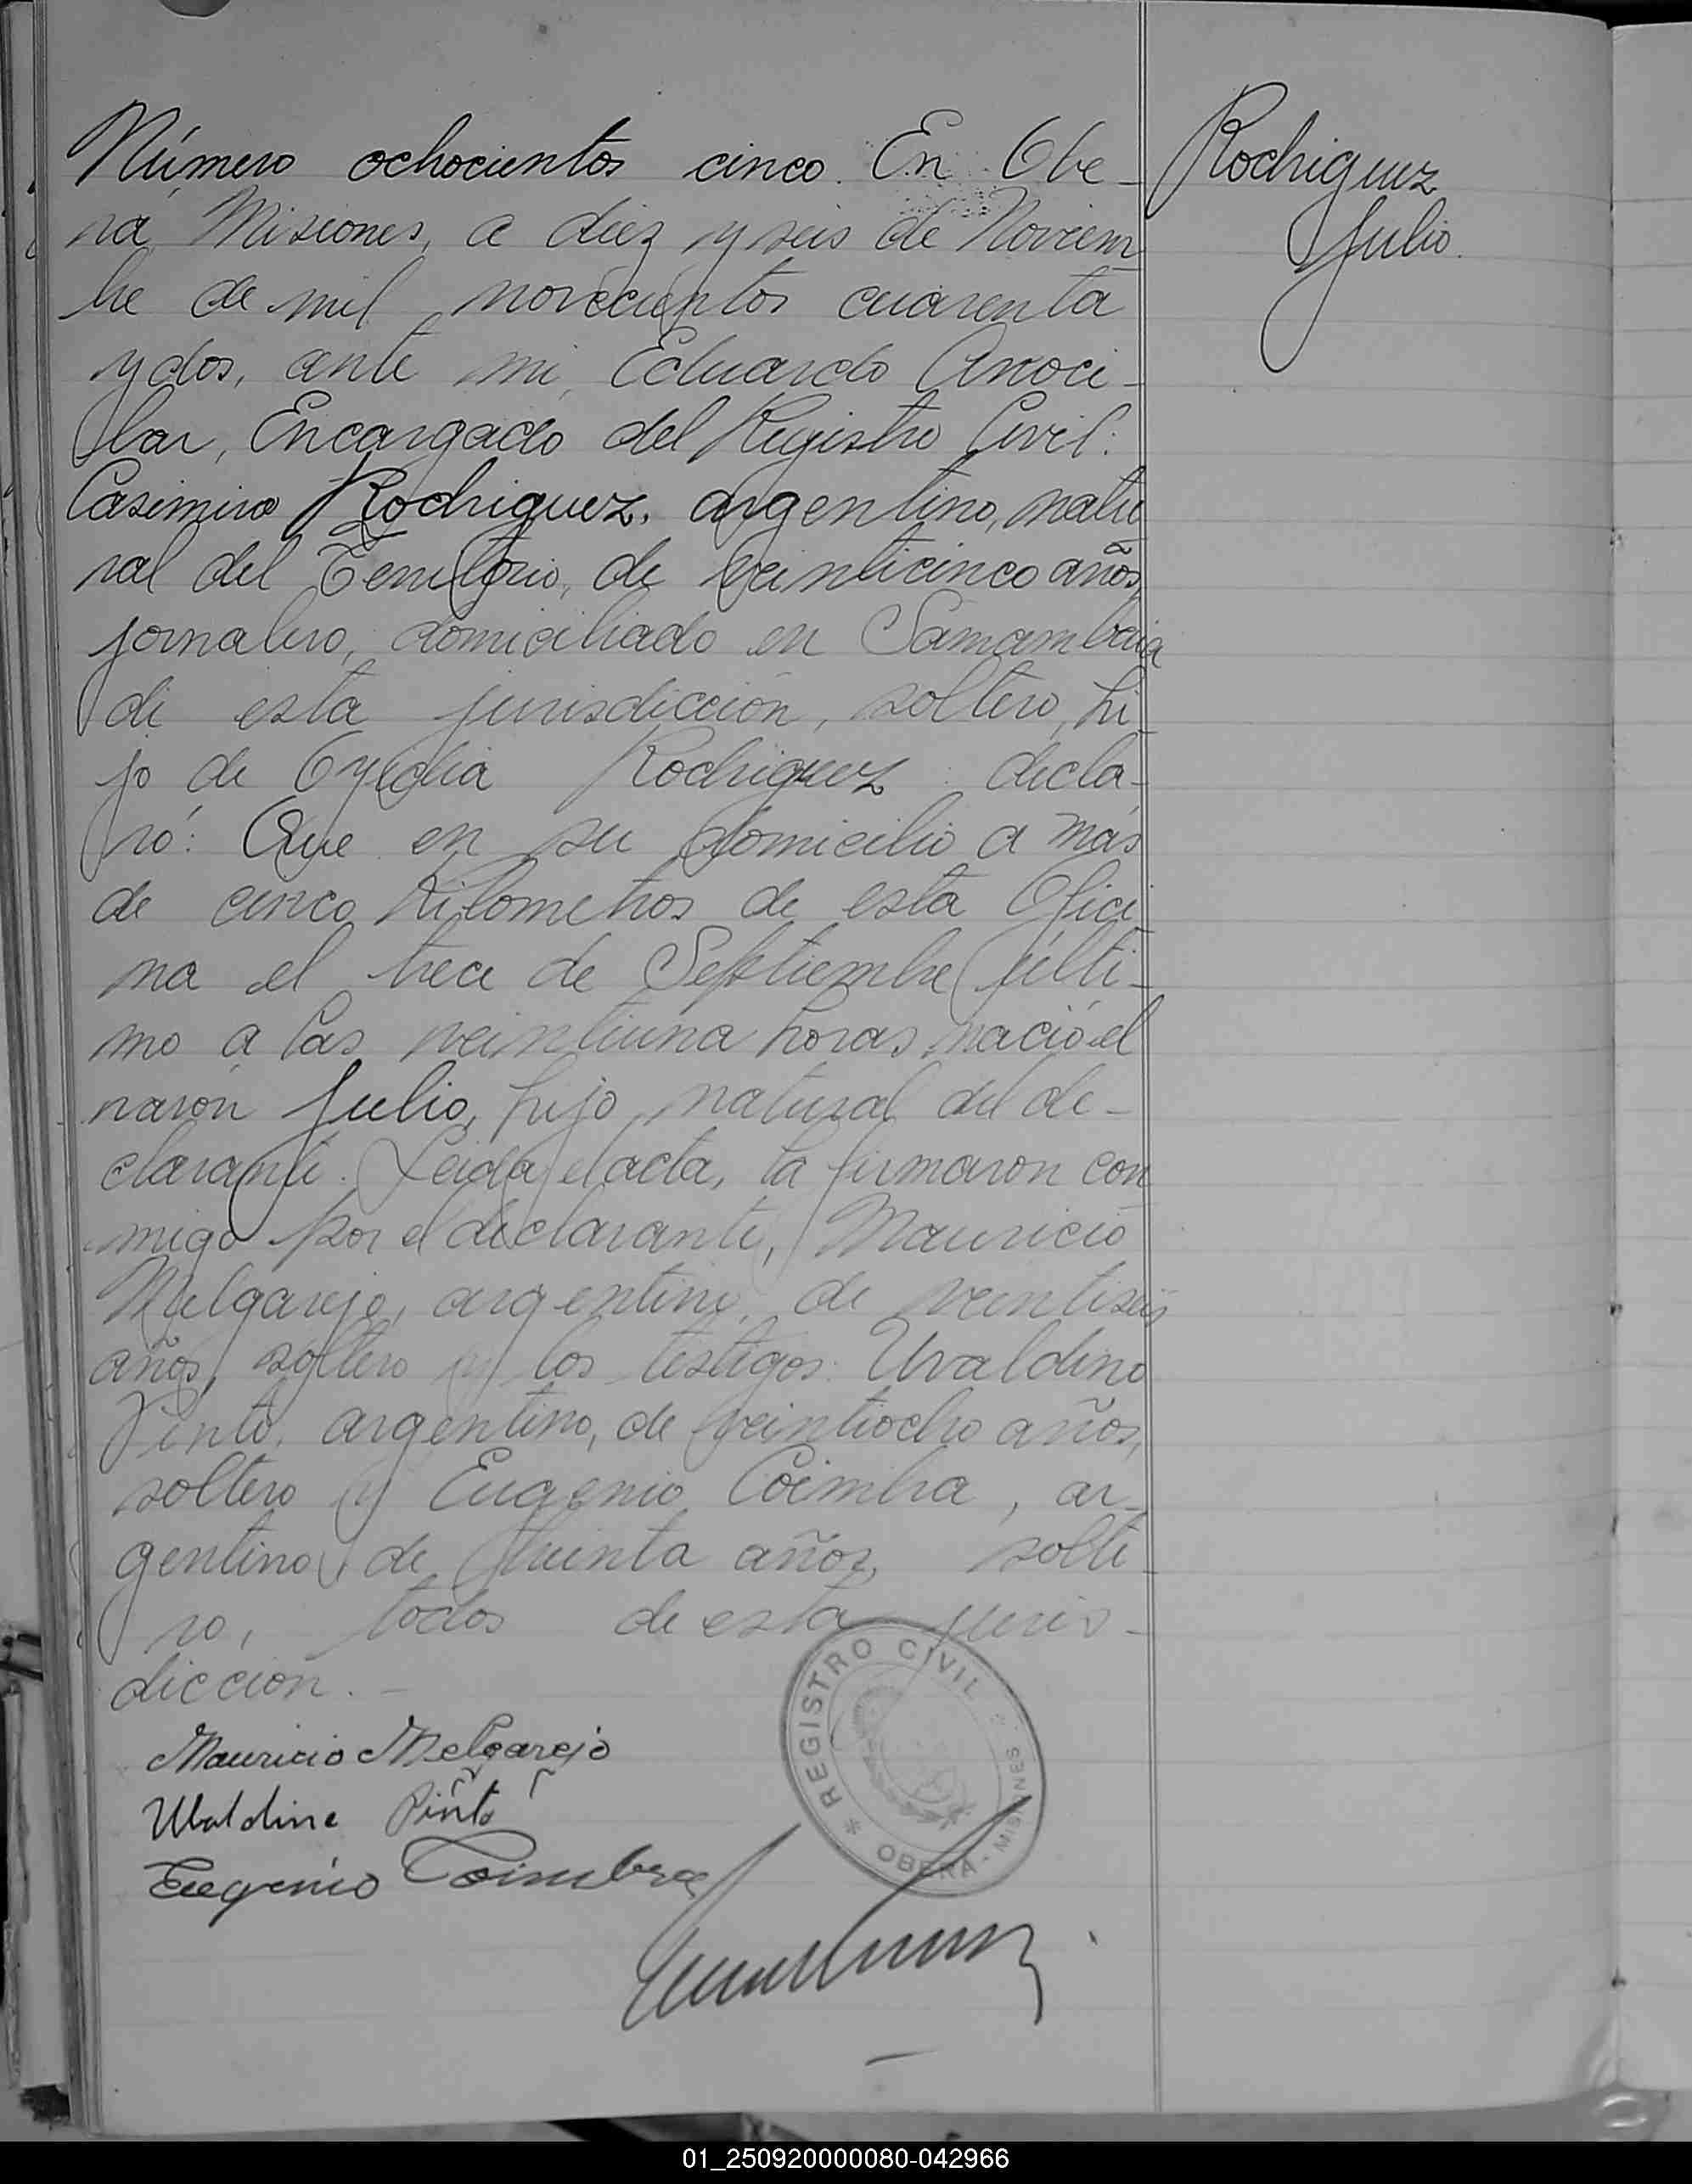 Número ochocientos cinco. En Obe-
rá, Misiones, a diez y seis de Noviem
bre de mil novecientos cuarenta
y dos, ante mi, Eduardo Aroci-
bar, Encargado del Registro Civil:
Casimiro Rodriguez, argentino, natu
ral del Territorio, de veinticinco años,
jornalero, domiciliado en Samambaia
de esta jurisdicción, soltero, hi-
jo de Rodriguez decla-
ró: Que en su domicilio a más
de cinco Kilometros de esta Ofici
na el trece de Septiembre últi-
mo a las veintiuna horas nació el
varón Julio, hijo natural del de-
clarante. Leida el acta, la firmaron con
migo por el declarante, Mauricio
Melgarejo, argentino, de veintiseis
años, soltero y los testigos: Uvaldino
Pinto, argentino, de veintiocho años,
soltero y Eugenio Coimbra, ar-
gentino, de treinta años, solte-
ro, todos de esta juris-
dicción.-
Mauricio Melgarejo
Ubaldino Pinto
Eugenio Coimbra
REGISTRO CIVIL
* OBERÁ - MISIONES
Rodriguez
Julio.
01_250920000080-042966